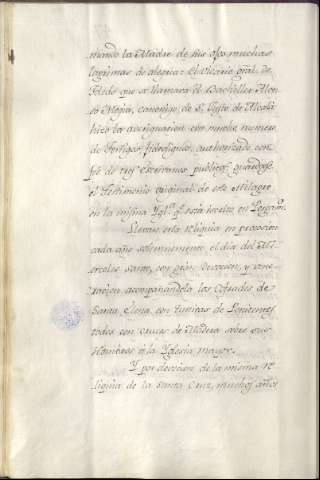 mando la Madre de sus ojos muchas
lagrimas de alegria: El Vicario gñal. de
Toledo que se llamava el Bachiller Alon
so Mexia, canonigo de S. Justo de Alcalà
hizo la averiguacion con mucho numero
de testigos fidedignos, authorizada con
fè de tres Escrivanos publicos, guardase
el Testimonio original de este Milagro
en la misma Ygla. q. està escrito en
Llevan esta Reliquia en procesion
cada año solemnemente el dia del Mi
ercoles santo, con gran devocion, y vene
racion acompañandola los Cofrades de
Santa Elena, con tunicas de Penitentes
todos con cruces de Madera sobre sus
Hombros à la Yglesia mayor.
Y por devocion de la misma Re
liquia de la Santa Cruz, muchos años